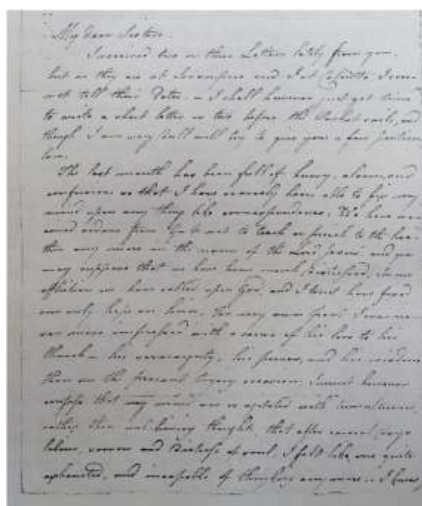 My dear Sisters.
I received two or three Letters lately from you,
but as they are at Serampore and I at Calcutta, I can
not tell their Dates. I shall however just get time
to write a short letter or two before the Packet sails, and
though I am very dull will try to give you a few particu
lars.
The last month has been full of hurry, alarm, and
confusion so that I have scarcely been able to fix my
mind upon any thing like correspondence. We have re
ceived orders from not to teach or preach to the hea
then any more in the name of the Lord Jesus, and you
may suppose that we have been much distressed. In our
affliction we have called upon God, and I trust have fixed
our only hope on him. For my own part I was ne
ver more impressed with a sense of his love to his
Church – his sovereignty – his power, and his wisdom
than on the present trying occasion. I must however
confess that my mind was so agitated with
rather than thought, that after several days
labour, sorrow and of soul, I felt like one quite
exhausted, and incapable of thinking any more. I have